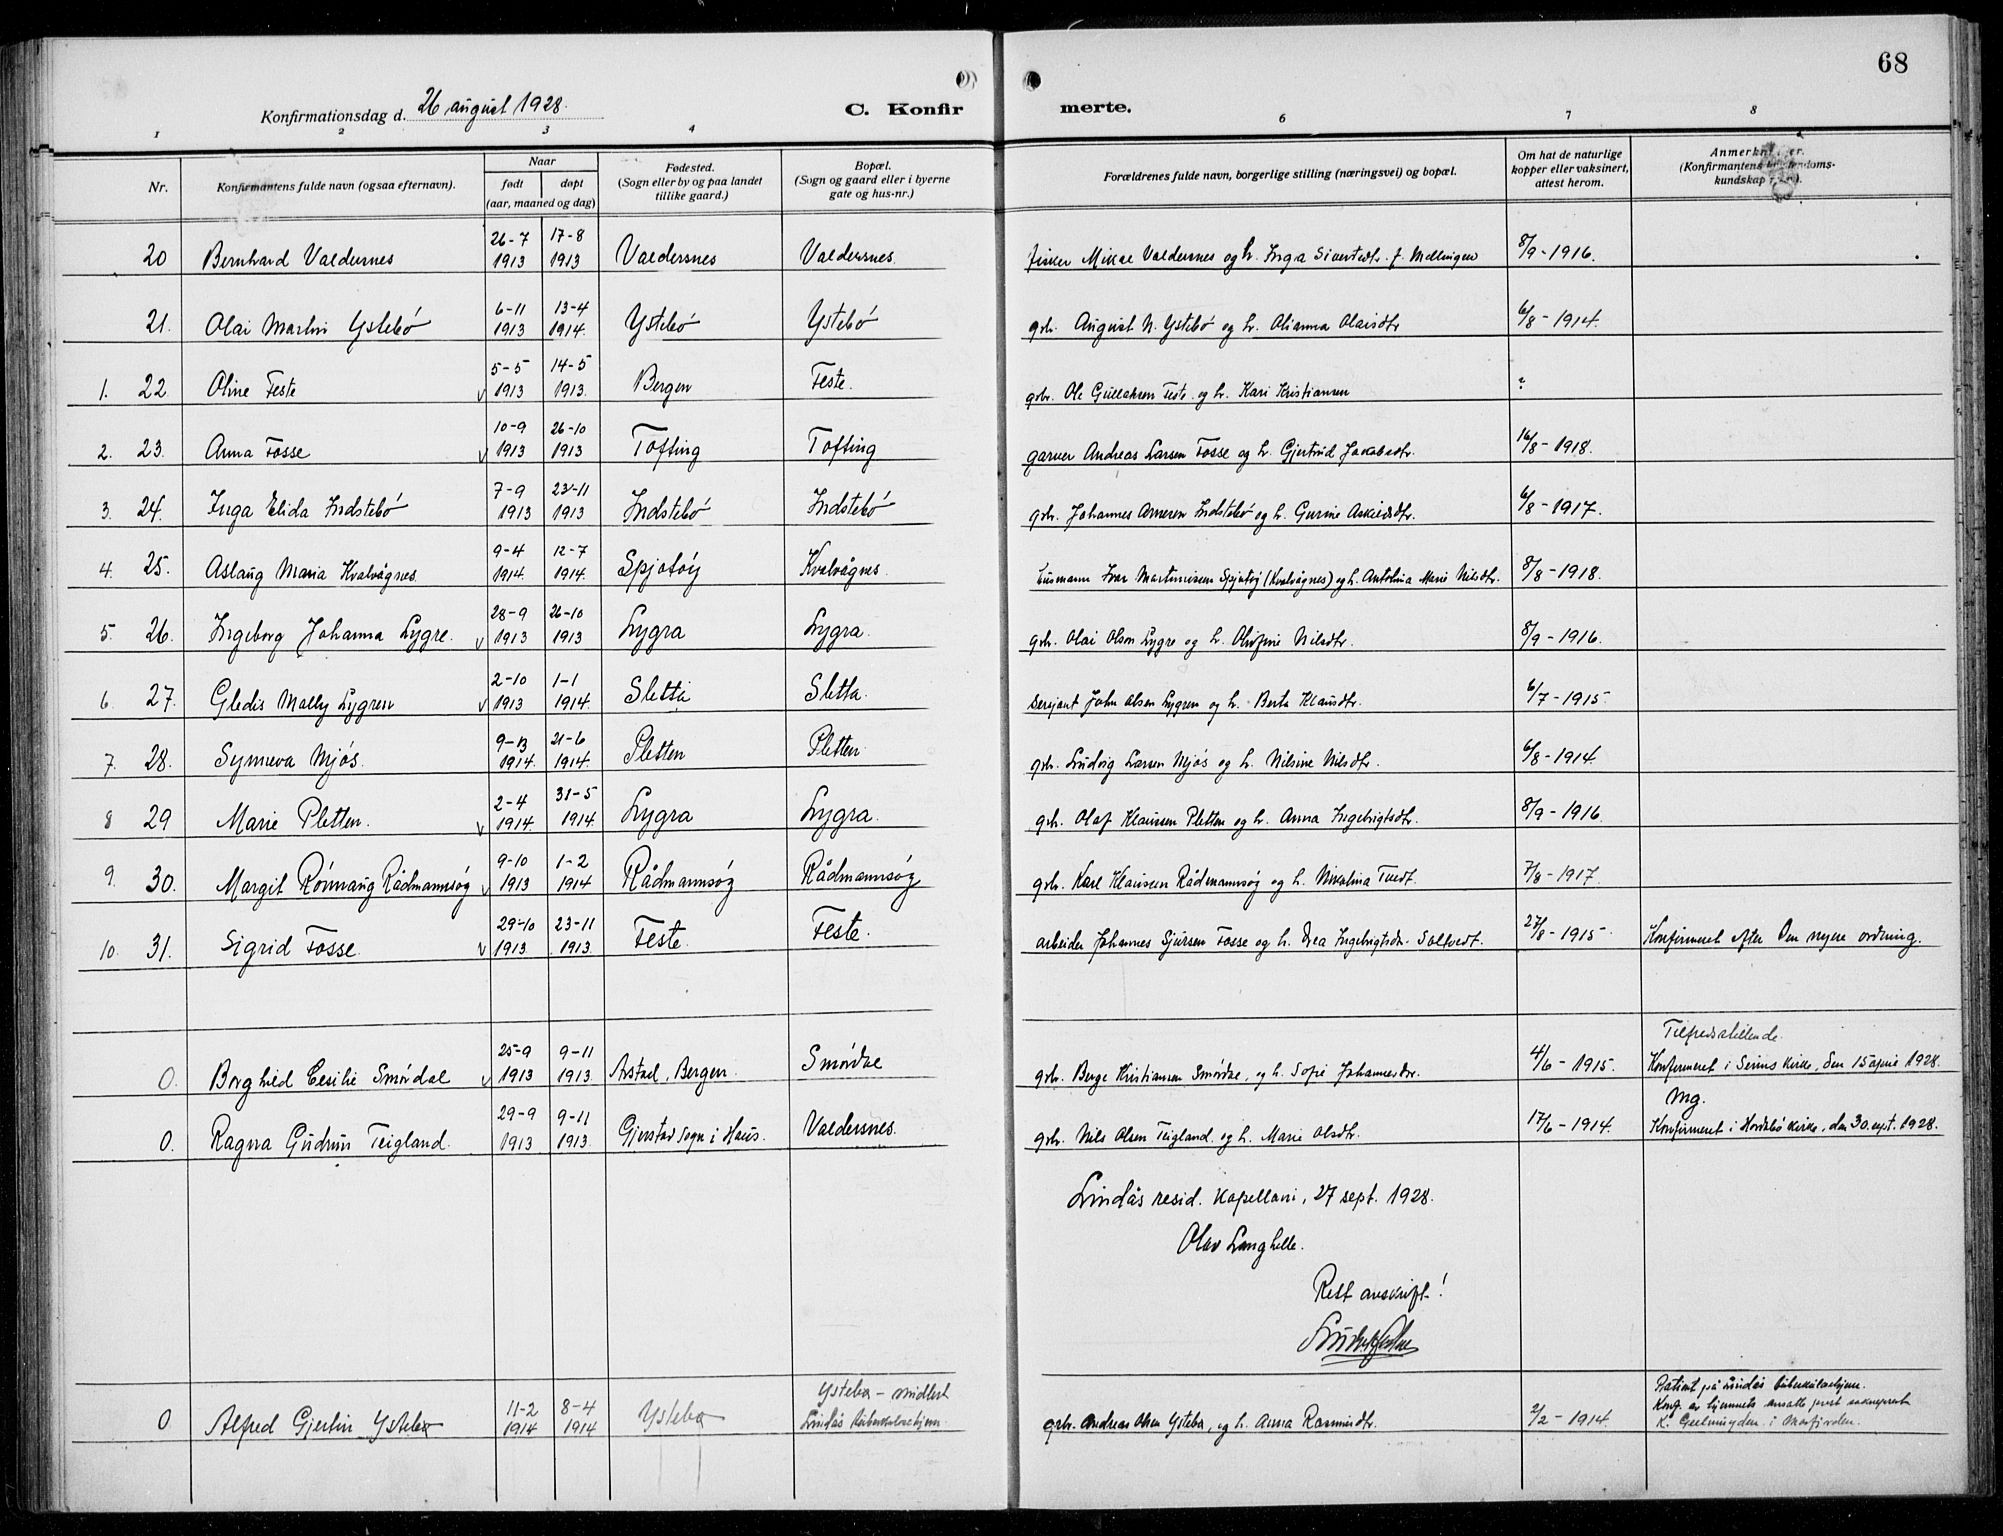 68
Konfirmationsdag d. 26 august 1928.
C. Konfirmerte.
1 2 3 4 6 7 8
Nr. Konfirmantens fulde navn (ogsaa efternavn). Naar født døpt (aar, maaned og dag) Fødested. (Sogn eller by og paa landet tillike gaard.) Bopæl. (Sogn og gaard eller i byerne gate og hus-nr.) Forældrenes fulde navn, borgerlige stilling (næringsvei) og bopæl. Om hat de naturlige kopper eller vaksinert, attest herom. (Konfirmantens kundskap
20 Bernhard Valdersnes 26-7 1913 17-8 1913 Valdersnes Valdersnes. fisker Mikal Valdersnes og h. Inga Sivertsdtr. f. Mellingen 8/9-1916.
21. Olai Martin Ystebö 6-11 1913 13-4 1914. Ystebö Ystebö gbr. August N. Ystebö og h. Olianna Olaisdtr 6/8-1914.
1. 22 Oline Feste v 5-5 1913 14-5 1913. Bergen Feste. gbr. Ole Gullaksen Feste og h. Kari Kristiansen ?
2. 23. Anna Fosse v 10-9 1913 26-10 1913 Tofting Tofting garver Andreas Larsen Fosse og h. Gjertrud Jakobsdtr. 16/8-1918.
3. 24. Inga Elida Indstebö 7-9 1913 23-11 1913 Indstebö Indstebö gbr. Johannes Arnesen Indstebö og h. Gurine Askildsdtr. 6/8-1917.
4. 25. Aslaug Maria Kvalvågnes. 9-4 1914. 12-7 1914. Spjotöy Kvalvågnes. husmann Ivar Martinusen Spjotöy (Kvalvågnes) og h. Antolina Marie Nilsdtr. 8/8-1918.
5. 26. Ingeborg Johanna Lygre. v 28-9 1913 26-10 1913 Lygra Lygra. gbr. Olai Olsen Lygre og h. Olufine Nilsdtr. 8/9-1916.
6. 27. Gledis Mally Lygren v 2-10 1913 1-1 1914. Sletta Sletta. serjant John Olsen Lygren og h. Berta Klausdtr. 6/7-1915
7. 28. Synneva Mjös. 9-13 1914. 21-6 1914. Pletten Pletten gbr. Ludvig Larsen Mjös og h. Nilsine Nilsdtr. 6/8-1914.
8 29 Marie Pletten. v 2-4 1914. 31-5 1914. Lygra Lygra. gbr. Olaf Klausen Pletten og h. Anna Ingebrigtsdtr. 8/9-1916.
9. 30. Margit Rönnaug Rådmannsöy v 9-10 1913 1-2 1914 Rådmannsöy Rådmannsöy gbr. Karl Klausen Rådmannsöy og h. Nikolina Tvedt. 7/8-1917.
10. 31. Sigrid Fosse. v 29-10 1913 23-11 1913. Feste. Feste. arbeider Johannes Sjursen Fosse og h. Dea Ingebrigtsdr. Soltvedt. 27/8-1915- Konfirmeret efter den nyere ordning.
0. Borghild Cesilie Smördal v 25-9 1913 9-11 1913. Årstad, Bergen. Smördal gbr. Berge Kristiansen Smördal, og h. Sofie Johannesdtr. 4/6-1915. Tilfredsstillende. Konfirmeret i Seims kirke, den 15 april 1928.
0. Ragna Gudrun Teigland. 29-9 1913 9-11 1913. Gjerstad sogn i Haus. Valdersnes. gbr. Nils Olsen Teigland. og h. Marie Olsdtr. 17/6-1914. Mg. Konfirmeret i Hordabö kirke, den 30 sept. 1928.
Lindås resid. kapellani, 27 sept. 1928.
Olav Langhelle.
Rett avskrift!
0 Alfred Gjertin Ystebø 11-2 1914 8-4 1914 Ystebø Ystebø - midlert Lindås tuberkulosehjem. gbr. Andreas Olsen Ystebø, og h. Anna Rasmusdtr. 2/2-1914. Patient på Lindås tuberkulosehjem. Konf. av hjemmets ansatte prest sokneprest K. Geelmuyden i Masfjorden.